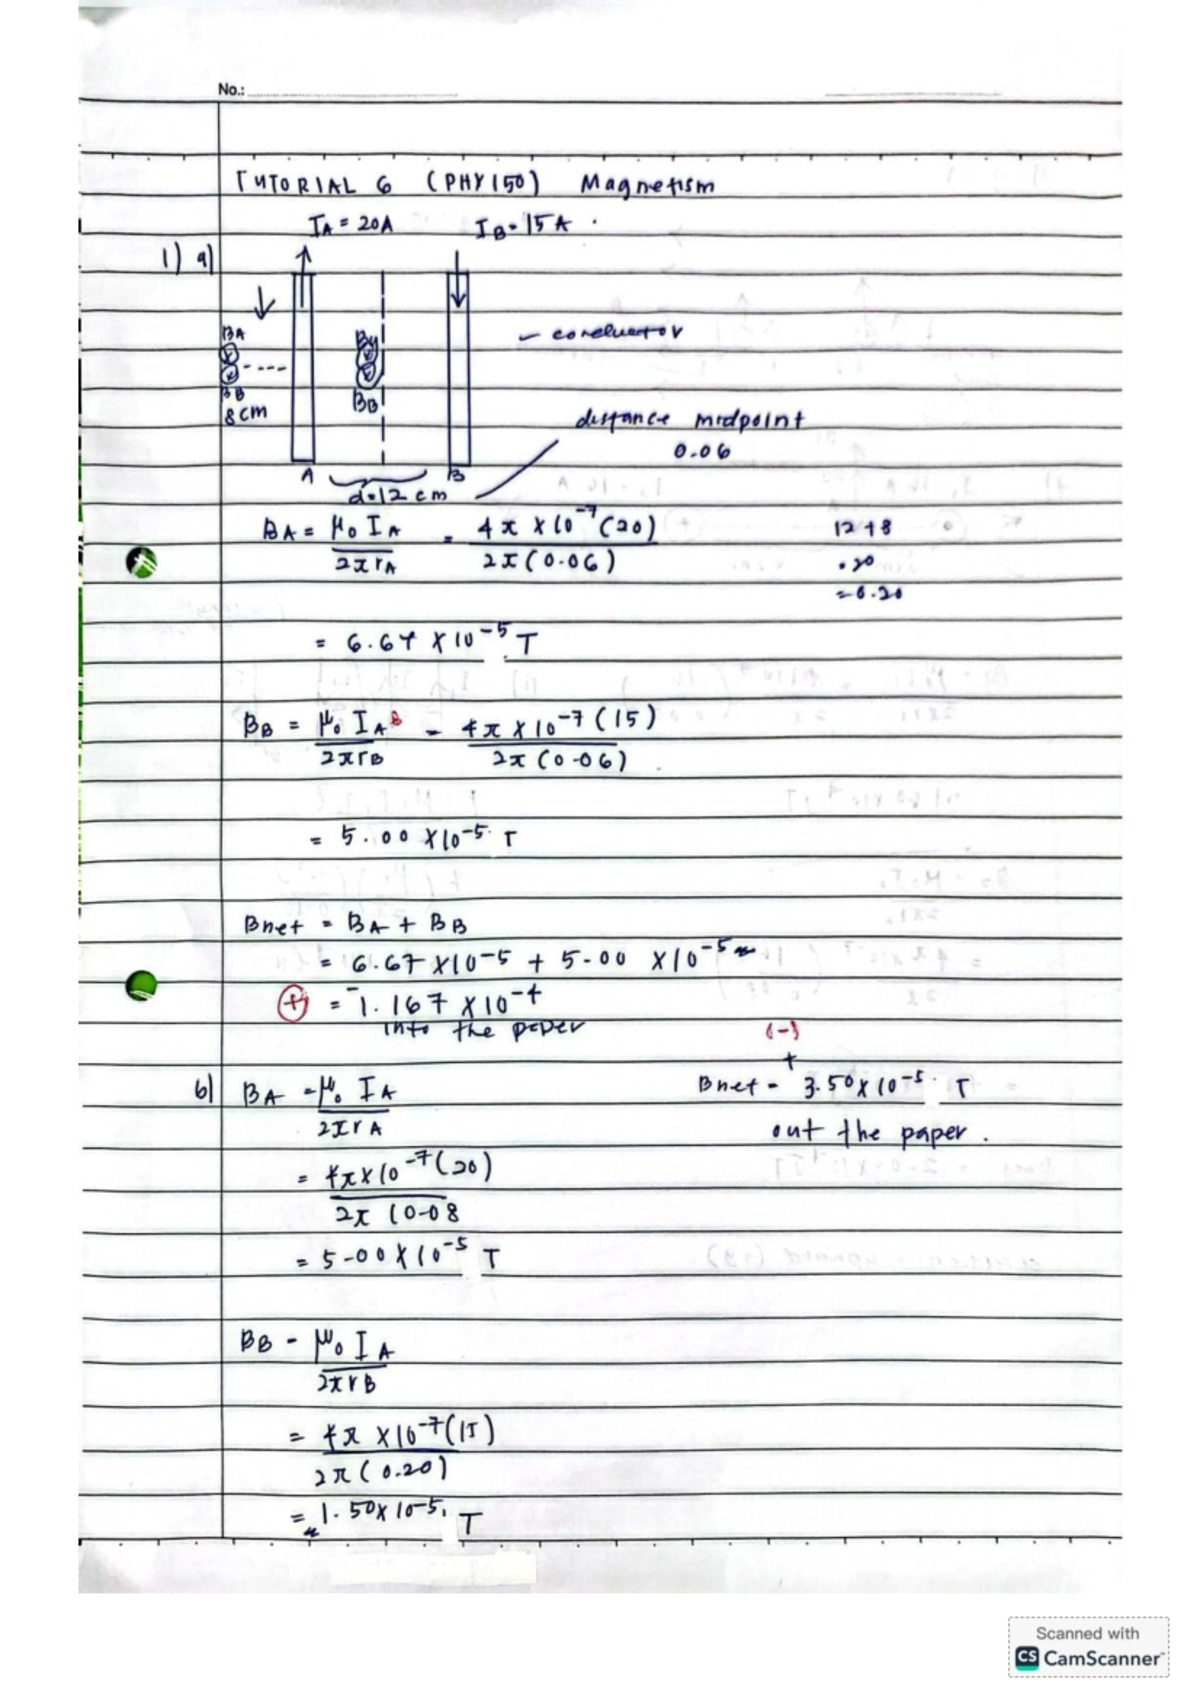 No.:
TUTORIAL 6 (PHY150) Magnetism
IA = 20A IB = 15A
1) a)
BA
BB
8cm
BB
- conductor
distance midpoint
0.06
A B
d=12 cm
BA = μ₀ IA / 2πrA = 4π × 10⁻⁷ (20) / 2π (0.06)
12+8
= 20
= 0.20
= 6.67 × 10⁻⁵ T
BB = μ₀ IA B / 2πrB = 4π × 10⁻⁷ (15) / 2π (0.06)
= 5.00 × 10⁻⁵ T
Bnet = BA + BB
= 6.67 × 10⁻⁵ + 5.00 × 10⁻⁵
(+) = 1.167 × 10⁻⁴
into the paper
b) BA = μ₀ IA / 2πrA
= 4π × 10⁻⁷ (20) / 2π (0.08
= 5.00 × 10⁻⁵ T
(-)
+
Bnet = 3.50 × 10⁻⁵ T
out the paper.
BB = μ₀ IA / 2πrB
= 4π × 10⁻⁷ (15) / 2π (0.20)
= 1.50 × 10⁻⁵ T
Scanned with
CS CamScanner